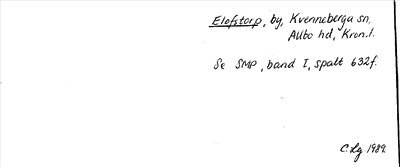 Elofstorp, by, Kvenneberga sn,
Allbo hd, Kron.l.
Se SMP, band I, spalt 632f.
C.Lg 1989.